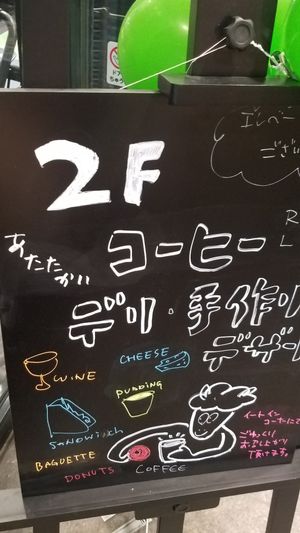 2F
エレベー
ござい
あたたかい
コーヒー
デリ・手作り
デザー
CHEESE
WINE
PUDDING
SANDWICH
BAGUETTE
DONUTS
COFFEE
イートイン
コーナーにて
ごゆっくり
お召し上がり
頂けます。